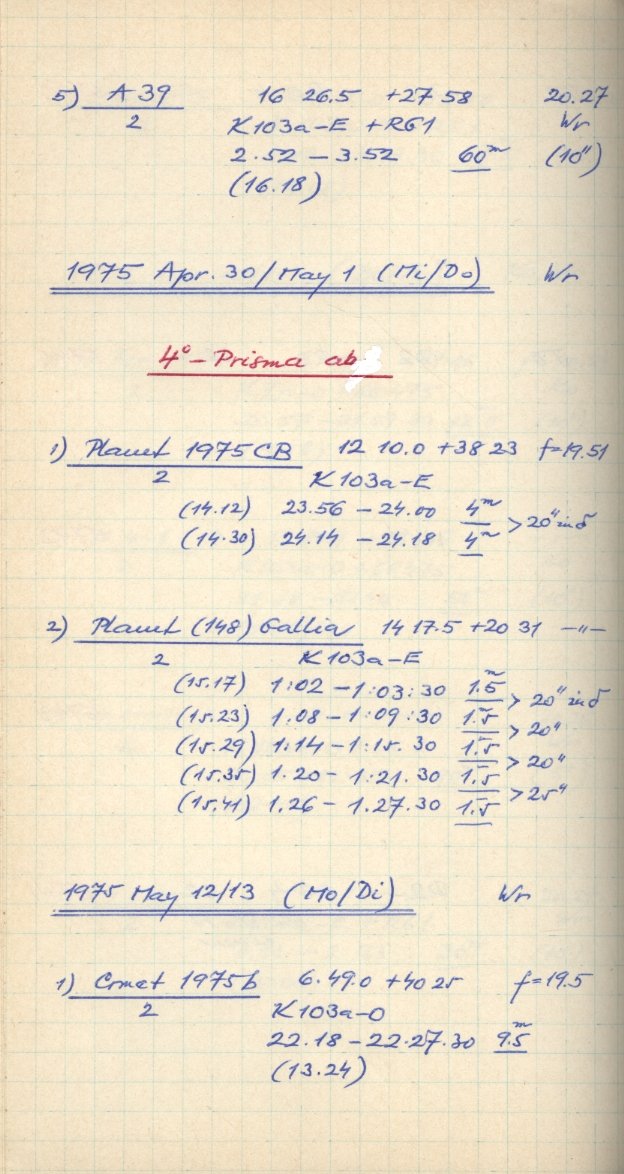 5) A 39 16 26.5 +27 58 20.27
2 K103a-E +RG1 Wr
2.52 – 3.52 60m (10")
(16.18)
1975 Apr. 30/May 1 (Mi/Do) Wr
4°-Prisma ab
1) Planet 1975 CB 12 10.0 +38 23 f=19.51
2 K103a-E
(14.12) 23.56 – 24.00 4m
> 20" in δ
(14.30) 24.14 – 24.18 4m
2) Planet (148) Gallia 14 17.5 +20 31 –"–
2 K103a-E
(15.17) 1:02 – 1:03:30 1.5m
> 20" in δ
(15.23) 1.08 – 1:09:30 1.5
> 20"
(15.29) 1:14 – 1:15.30 1.5
> 20"
(15.35) 1.20 – 1:21.30 1.5
> 25"
(15.41) 1.26 – 1.27.30 1.5
1975 May 12/13 (Mo/Di) Wr
1) Comet 1975b 6.49.0 +40 25 f=19.5
2 K103a-O
22.18 – 22.27.30 9.5m
(13.24)